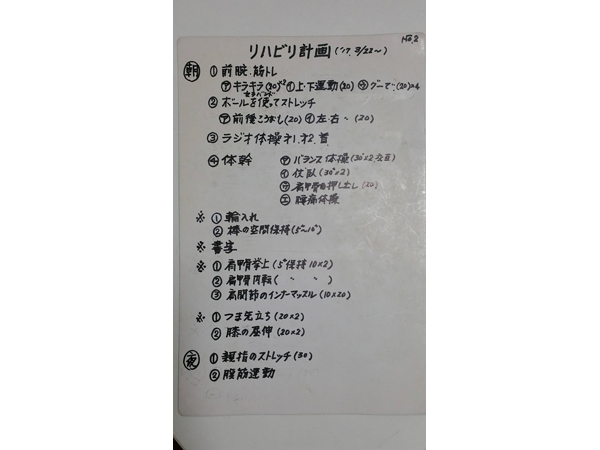 No.2
リハビリ計画 ('17. 3/22〜)
朝 ① 前腕.筋トレ
㋐キラキラ(20)×3 ㋑上・下運動(20) ㋒グーで(20)×4
② ボールを使ってストレッチ
㋐前後こうほし(20) ㋑左.右 〃 (20)
③ ラジオ体操 才1.才2.首
④ 体幹 ㋐バランス体操(30"×2.交互)
㋑伏臥(30"×2)
㋒肩甲骨の押し出し(20)
㋓腰痛体操
※ ① 輪入れ
② 棒の空間保持(5"〜10")
※ 書字
※ ① 肩甲骨挙上(5"保持10×2)
② 肩甲骨内転( 〃 〃 )
③ 肩関節のインナーマッスル(10×20)
※ ① つま先立ち(20×2)
② 膝の屈伸(20×2)
夜 ① 親指のストレッチ(30)
② 腹筋運動